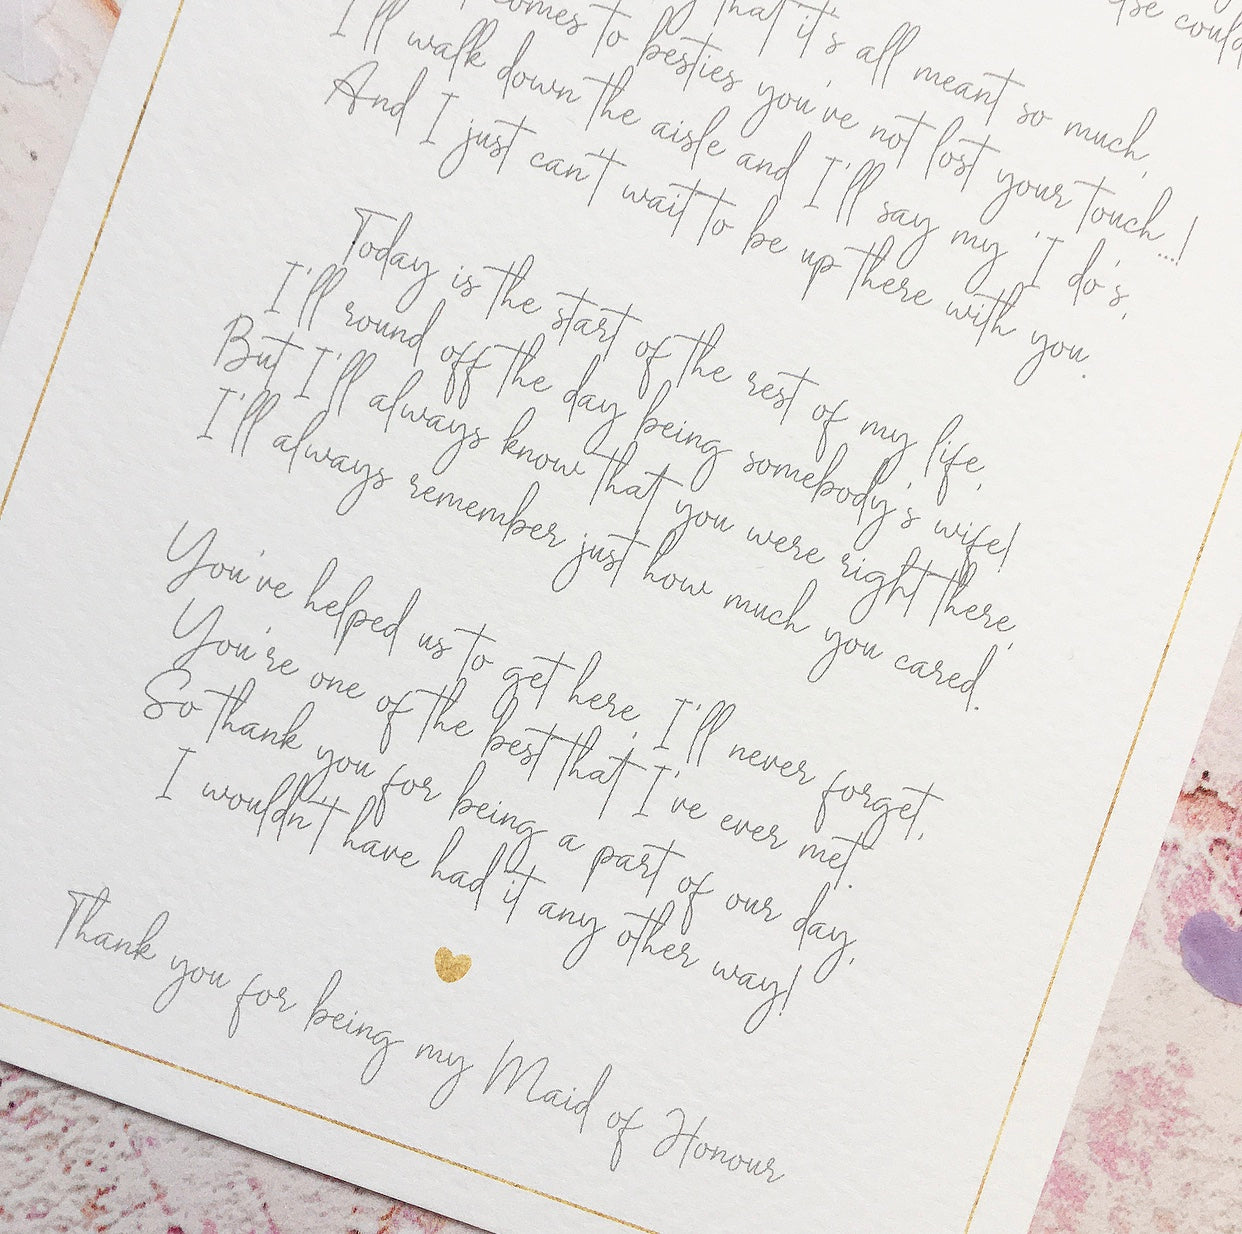 else could
that it's all meant so much,
comes to besties you've not lost your touch...!
I'll walk down the aisle and I'll say my 'I do's,
And I just can't wait to be up there with you.
Today is the start of the rest of my life,
I'll round off the day being somebody's wife!
But I'll always know that you were right there,
I'll always remember just how much you cared.
You've helped us to get here, I'll never forget,
You're one of the best that I've ever met.
So thank you for being a part of our day,
I wouldn't have had it any other way!
Thank you for being my Maid of Honour